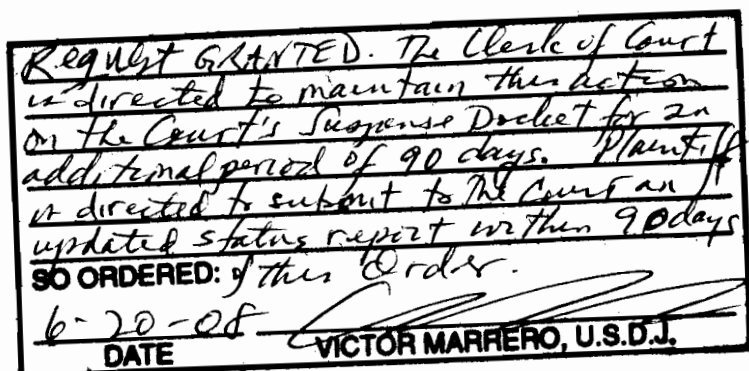 Request GRANTED. The Clerk of Court
is directed to maintain this action
on the Court's Suspense Docket for an
additional period of 90 days. Plaintiff
is directed to submit to the Court an
updated status report within 90 days
SO ORDERED: of this Order.
6-20-08
DATE VICTOR MARRERO, U.S.D.J.